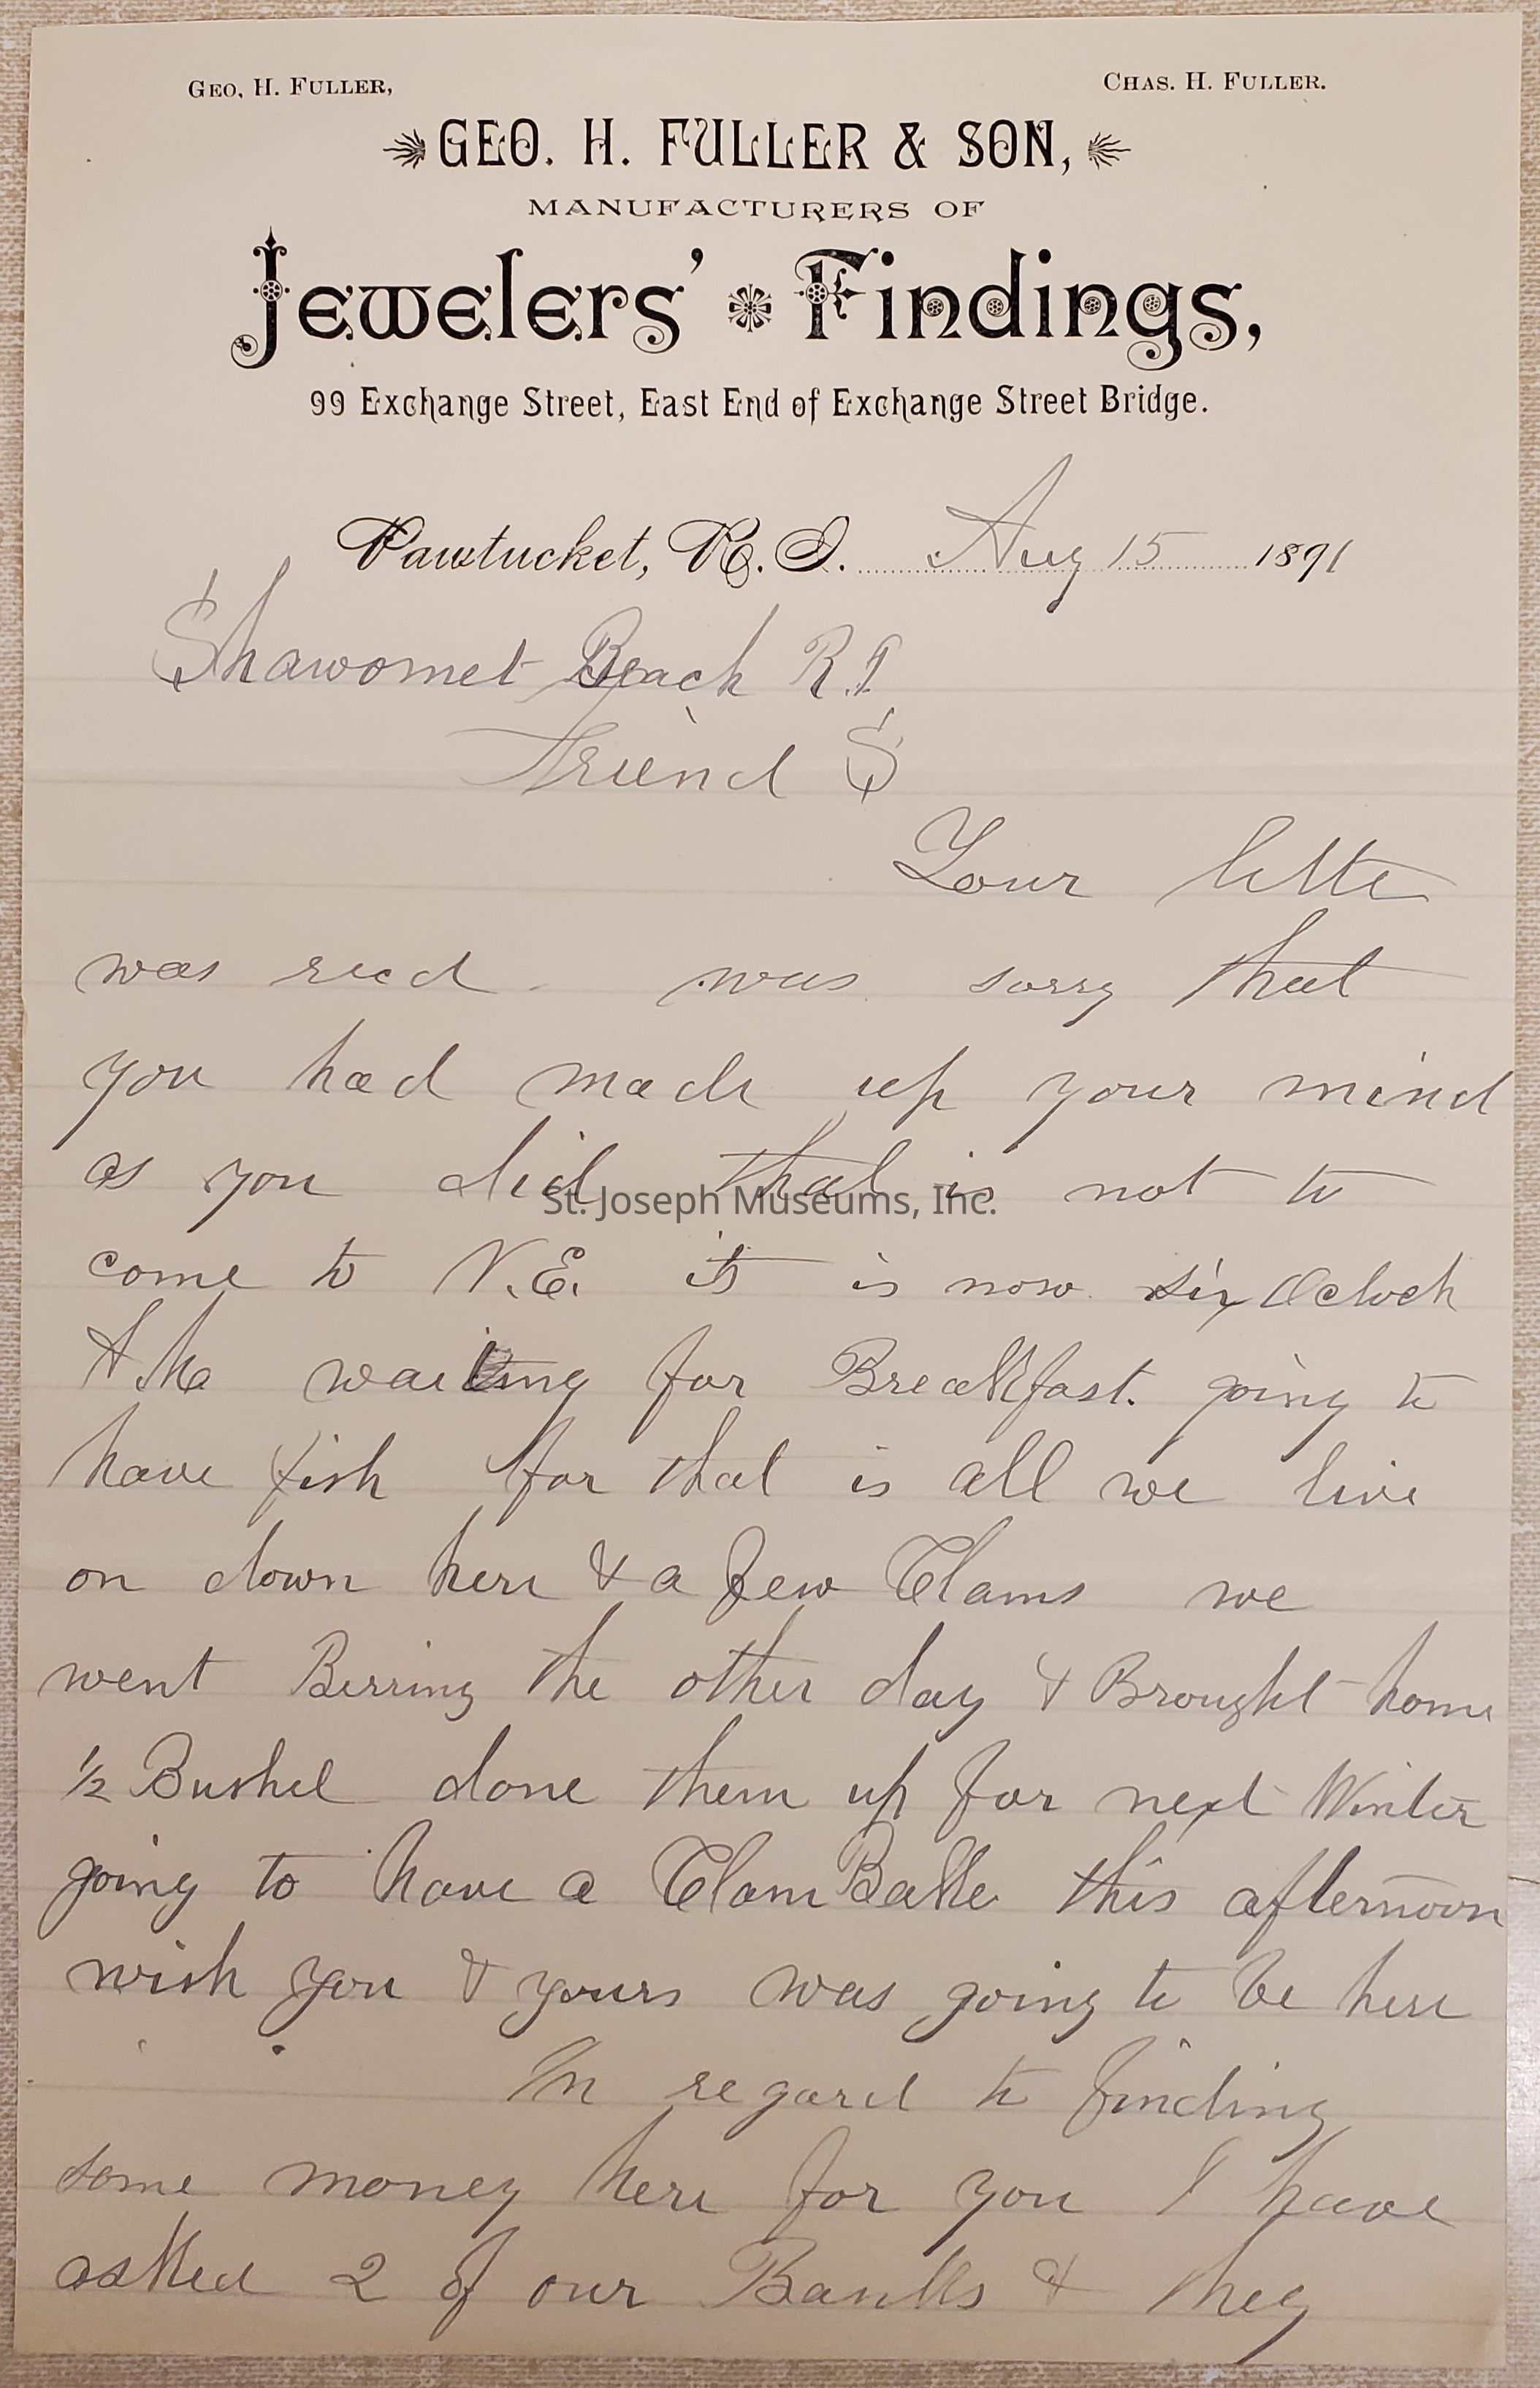 GEO. H. FULLER, CHAS. H. FULLER.
GEO. H. FULLER & SON,
MANUFACTURERS OF
Jewelers' Findings,
99 Exchange Street, East End of Exchange Street Bridge.
Pawtucket, R. I. Aug 15 1891
Shawomet Beach R.I.
Friend S
Your lette
was recd. was sorry that
you had made up your mind
as you did that is not to
come to N.E. it is now six Oclock
A.M. waiting for Breakfast. going to
have fish for that is all we live
on down here & a few Clams we
went Berring the other day & Brought home
½ Bushel done them up for next Winter
going to have a Clam Bake this afternoon
wish you & yours was going to be here
In regard to finding
some money here for you I have
asked 2 of our Banks & they
St. Joseph Museums, Inc.